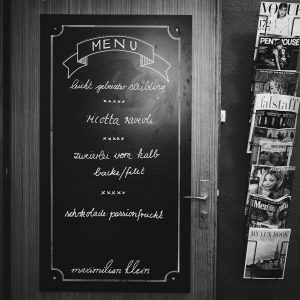 MENU
leicht gebeizter saibling
xxxxx
ricotta ravioli
xxxxx
zweierlei vom kalb
backe/filet
xxxxx
schokolade passionfrucht
maximilian klein
VOGUE
PENTHOUSE
falstaff
MY LUX BOOK